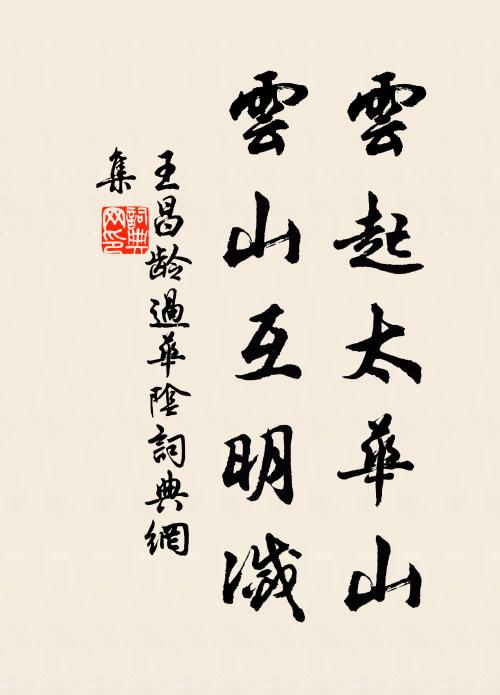 雲起太華山
雲山互明滅
王昌龄過華陰詞典網
集
詞典网印